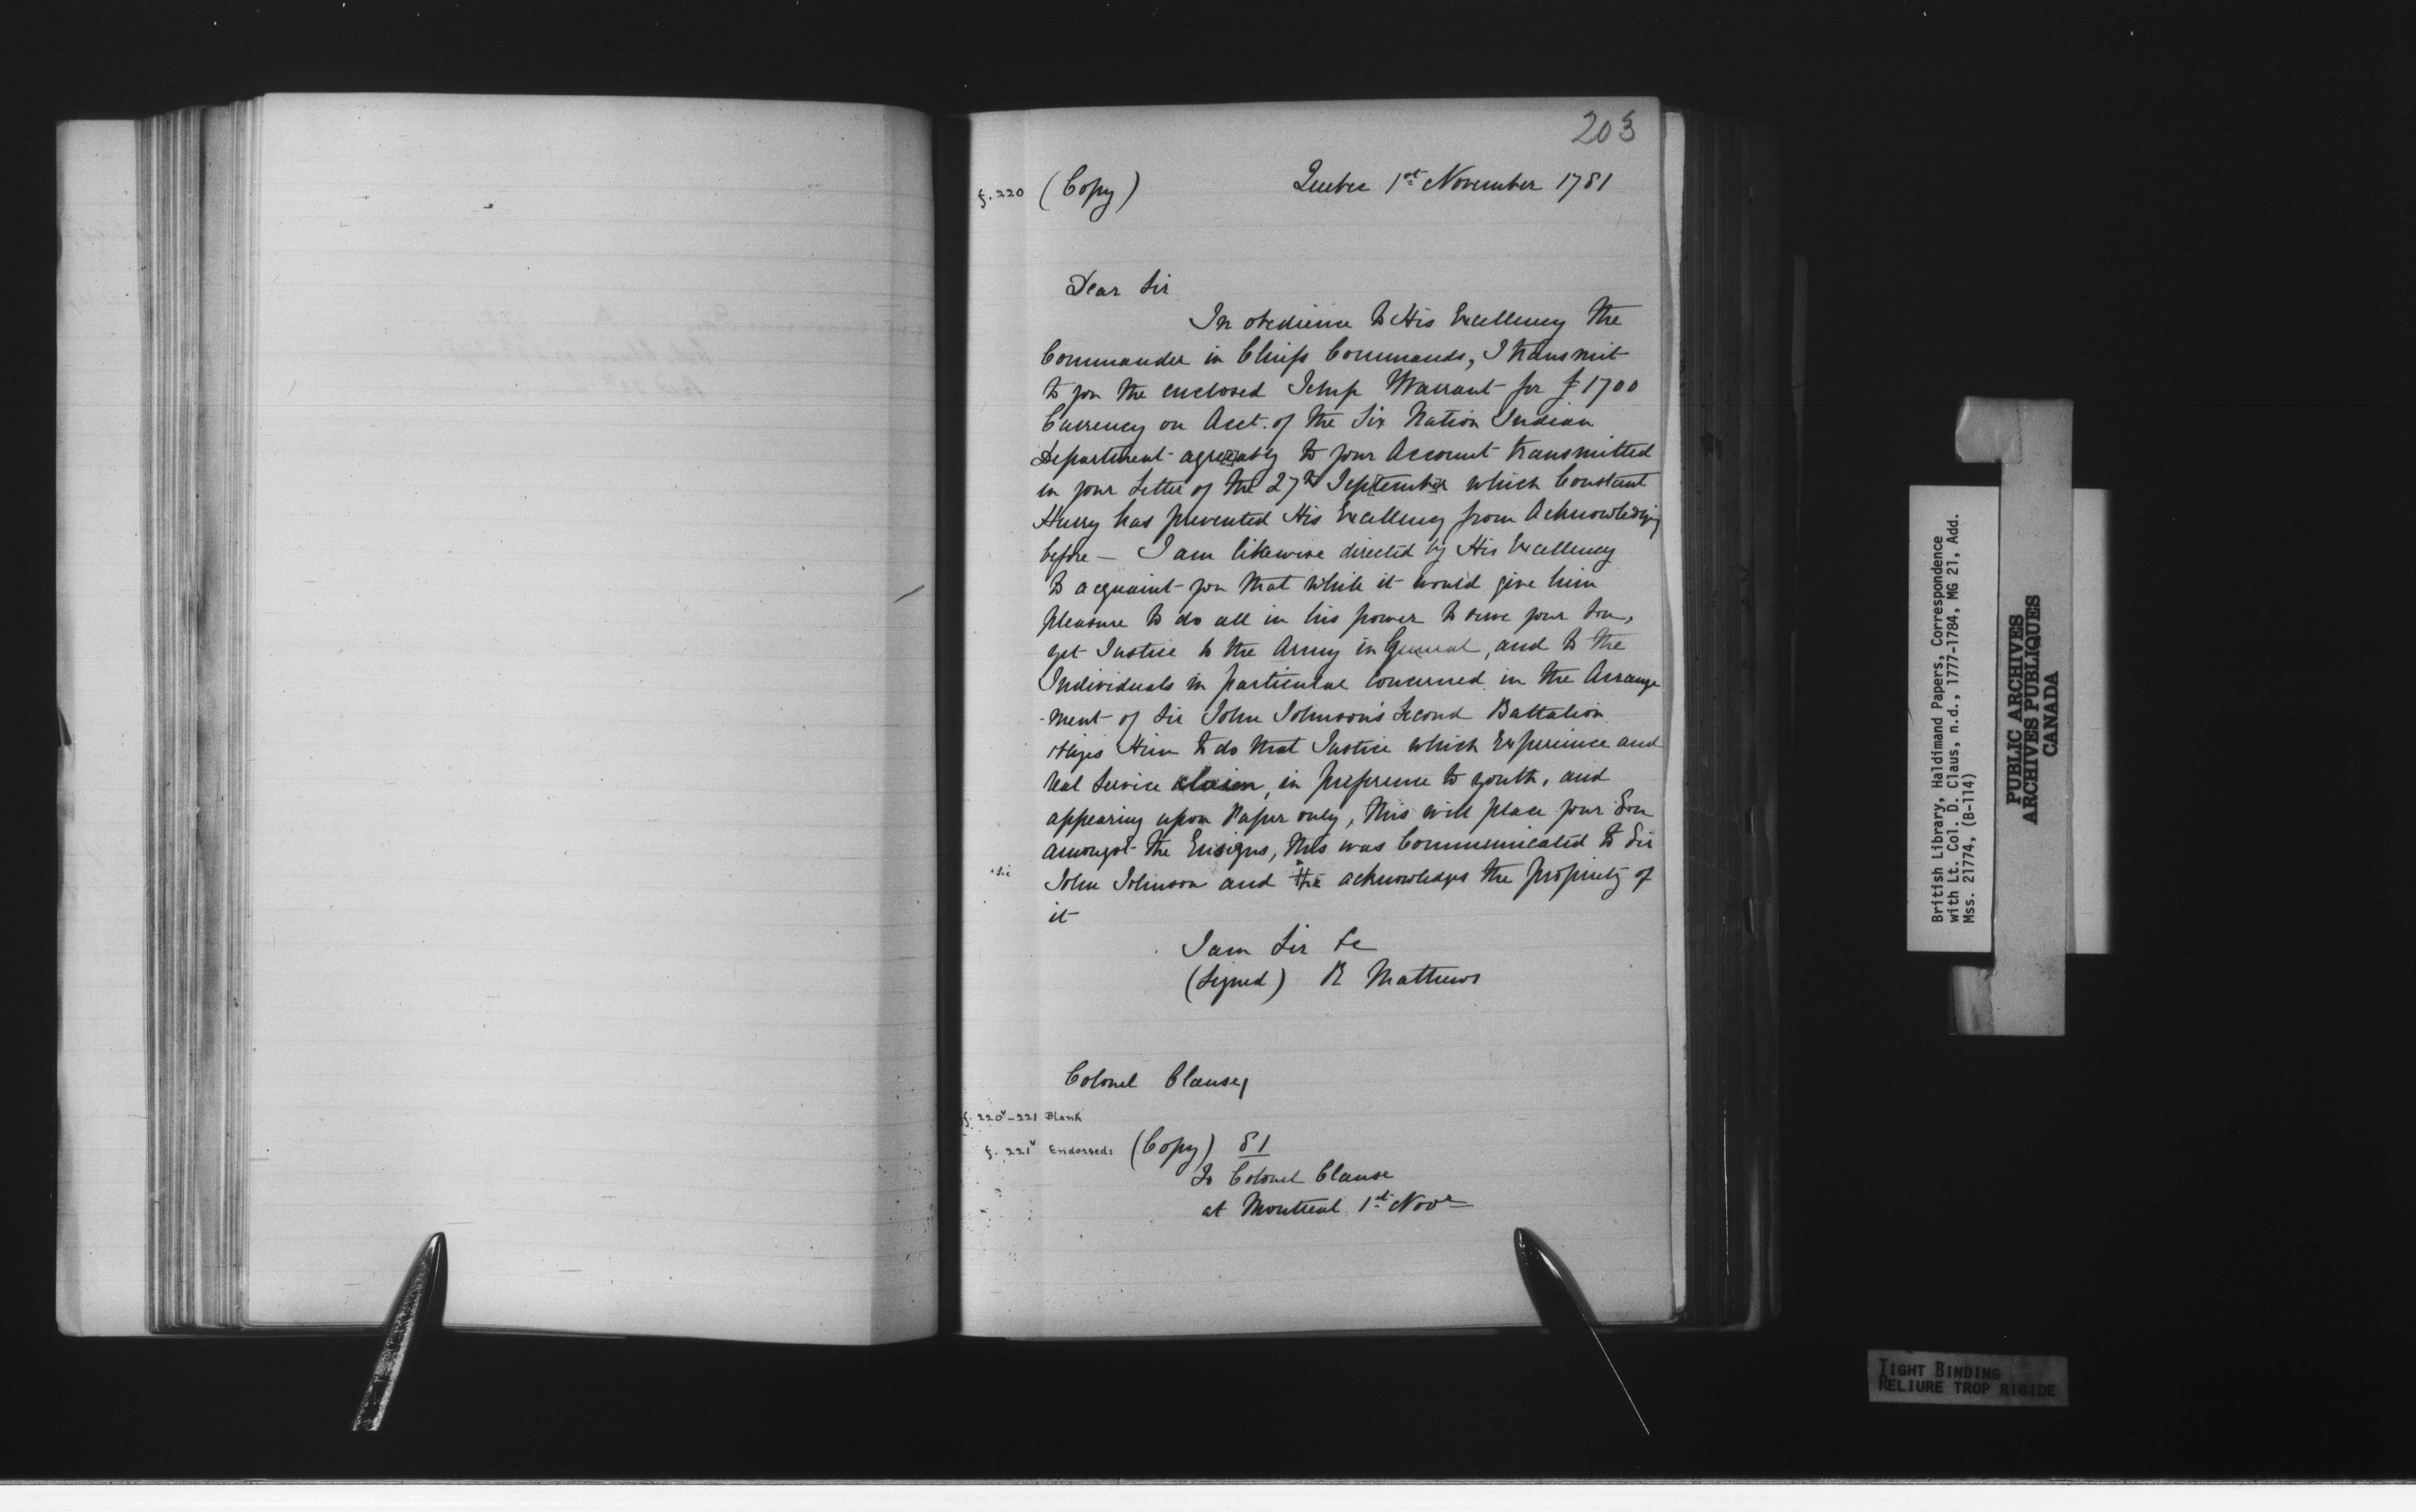 203
f. 220 (Copy) Quebec 1st November 1781
Dear Sir
In obedience to His Excellency the
Commander in Chiefs Commands, I transmit
to you the enclosed Temp Warrant for £1700
Currency on Acct. of the Six Nation Indian
Department agreeably to your Account transmitted
in your Letter of the 27th September which Constant
Hurry has prevented His Excellency from Acknowledging
before — I am likewise directed by His Excellency
to acquaint you that while it would give him
pleasure to do all in his power to serve your Son,
yet Justice to the Army in General, and to the
Individuals in particular concerned in the Arrange
-ment of Sir John Johnson's Second Battalion
Him to do that Justice which Experience and
real Service claim, in preference to youth, and
appearing upon Paper only, this will place your Son
amongst the Ensigns, this was Communicated to Sir
John Johnson and he acknowledges the propriety of
it
I am Sir &c
(Signed) R Mathews
Colonel Clause,
f. 220v-221 Blank
f. 221v Endorsed: (Copy) 81
To Colonel Clause
at Montreal 1st Novr
British Library, Haldimand Papers, Correspondence
with Lt. Col. D. Claus, n.d., 1777-1784, MG 21, Add.
Mss. 21774, (B-114)
PUBLIC ARCHIVES
ARCHIVES PUBLIQUES
CANADA
TIGHT BINDING
RELIURE TROP RIGIDE